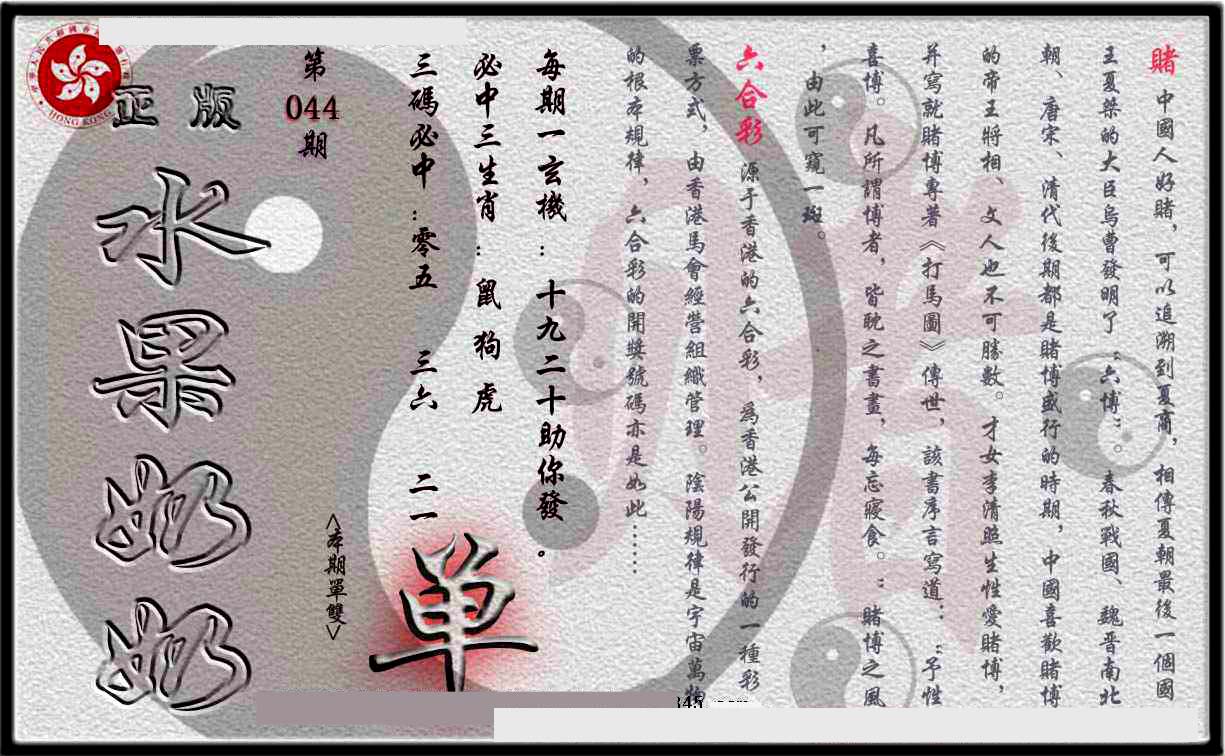 賭 中國人好賭，可以追溯到夏商，相傳夏朝最後一個國
王夏桀的大臣烏曹發明了“六博”。春秋戰國、魏晋南北
朝、唐宋、清代後期都是賭博盛行的時期，中國喜歡賭博
的帝王將相、文人也不可勝數。才女李清照生性愛賭博，
并寫就賭博專著《打馬圖》傳世，該書序言寫道：“予性
喜博。凡所謂博者，皆耽之書畫，每忘寢食。”賭博之風
，由此可窺一斑。
六合彩 源于香港的六合彩，為香港公開發行的一種彩
票方式，由香港馬會經營組織管理。陰陽規律是宇宙萬物
的根本規律，六合彩的開獎號碼亦是如此……
每期一玄機：十九二十助你發。
必中三生肖：鼠 狗 虎
三碼必中：零五 三六 二一
單
<本期單雙>
第
044
期
正版
水果奶奶
HONG KONG
345